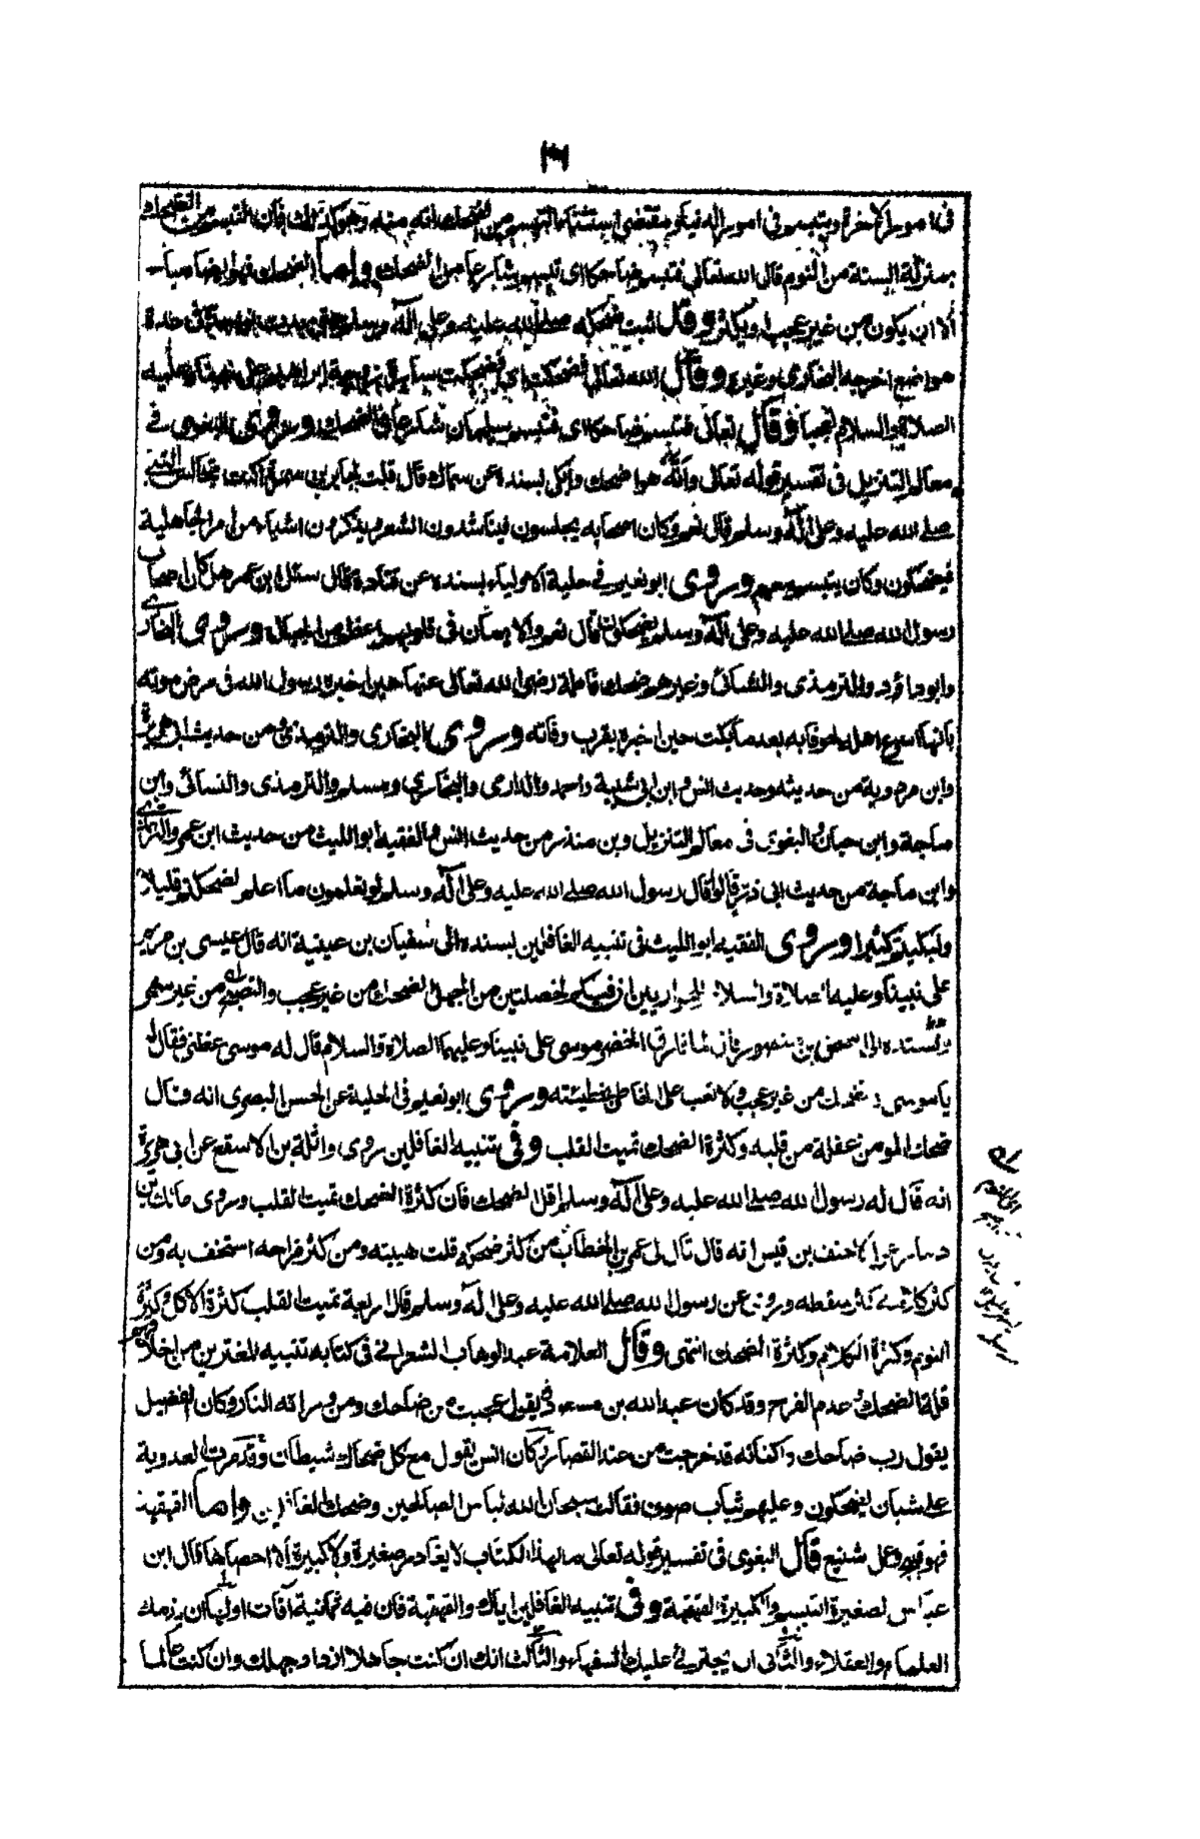 في امور الآخرة ويتبسم في امور الدنيا ومقتضى استثناء التبسم من الضحك انه منه وهو كذلك فان التبسم من الضحك
بمنزلة السنة من النوم قال الله تعالى فتبسم ضاحكا اى تبسم شارعا من الضحك واما الضحك فهو ايضا مباح
ألا ان يكون من غير عجب او يكثر وقد ثبت ضحكه صلى الله عليه وعلى آله وسلم حتى بدت نواجذه فى عدة
مواضع اخرجه البخاري وغيره وقال الله تعالى فضحكت اى فضحكت سارة زوجة ابراهيم على نبينا وعليه
الصلاة والسلام تعجبا وقال تعالى فتبسم ضاحكا اى فتبسم سليمان شارعا فى الضحك وروى البغوى فى
معالم التنزيل فى تفسير قوله تعالى وأنه هو اضحك وابكى بسنده عن سماك قال قلت لجابر بن سمرة أكنت تجالس النبي
صلى الله عليه وعلى آله وسلم قال نعم وكان اصحابه يجلسون فيتناشدون الشعر ويذكرون اشياء من امر الجاهلية
فيضحكون وكان يتبسم معهم وروى ابو نعيم فى حلية الاولياء بسنده عن قتادة قال سئل ابن عمر هل كان اصحاب
رسول الله صلى الله عليه وعلى آله وسلم يضحكون قال نعم والايمان فى قلوبهم اعظم من الجبال وروى البخاري
وابو داؤد والترمذى والنسائى وغيرهم ضحك فاطمة رضى الله تعالى عنها حين اخبره رسول الله فى مرض موته
بأنها اسرع اهله لحوقا به بعد ما بكت حين اخبره بقرب وفاته وروى البخارى والترمذى من حديث ابى هريرة
وابن مردوية من حديثه وحديث انس وابن ابى شيبة واحمد والدارمى والبخارى ومسلم والترمذى والنسائى وابن
ماجة وابن حبان والبغوى فى معالم التنزيل وبن منذر من حديث انس والفقيه ابو الليث من حديث ابن عمر والترمذى
وابن ماجة من حديث ابى ذر قالوا قال رسول الله صلى الله عليه وعلى آله وسلم لو تعلمون ما اعلم لضحكتم قليلا
ولبكيتم كثيرا وروى الفقيه ابو الليث فى تنبيه الغافلين بسنده الى سفيان بن عيينة انه قال عيسى بن مريم
على نبينا وعليه الصلاة والسلام للحواريين ان فيكم لخصلتين من الجهل الضحك من غير عجب والتصبح من غير سهر
وبسنده الى منصور قال لما فارق الخضر موسى على نبينا وعليهما الصلاة والسلام قال له موسى عظنى فقال له
ياموسى لا تضحك من غير عجب ولا تعب على الخاطى بخطيئته وروى ابو نعيم فى الحلية عن الحسن البصرى انه قال
ضحك المومن غفلة من قلبه وكثرة الضحك تميت القلب وفى تنبيه الغافلين روى واثلة بن الاسقع عن ابى هريرة
انه قال له رسول الله صلى الله عليه وعلى آله وسلم اقل الضحك فان كثرة الضحك تميت القلب وروى مالك بن
دينار عن الاحنف بن قيس انه قال قال لى عمر بن الخطاب من كثر ضحكه قلت هيبته ومن كثر مزاحه استخف به ومن
كثر كلامه كثر سقطه وروى عن رسول الله صلى الله عليه وعلى آله وسلم قال اربعة تميت القلب كثرة الاكل وكثرة
النوم وكثرة الكلام وكثرة الضحك انتهى وقال العلامة عبد الوهاب الشعرانى فى كتابه تنبيه المغترين من اخلاقهم
قلة الضحك وعدم الفرح وقد كان عبد الله بن مسعود يقول عجبت من ضاحك ومن وراءه النار وكان الفضيل
يقول رب ضاحك واكفانه قد خرجت من عند القصار وكان انس يقول مع كل ضحك شيطان وقد مرت العدوية
على شبان يضحكون وعليهم ثياب صوف فقالت سبحان الله لباس الصالحين وضحك الغافلين واما القهقهة
فهو قبيح وعمل شنيع قال البغوى فى تفسير قوله تعالى مال هذا الكتاب لا يغادر صغيرة ولا كبيرة الا احصاها قال ابن
عباس الصغيرة التبسم والكبيرة القهقهة وفى تنبيه الغافلين اياك والقهقهة فان فيه ثمانية آفات اولها ان يذمك
العلماء والعقلاء والثانى ان يجترئ عليك السفهاء والثالث انك ان كنت جاهلا ازداد جهلك وان كنت عالما